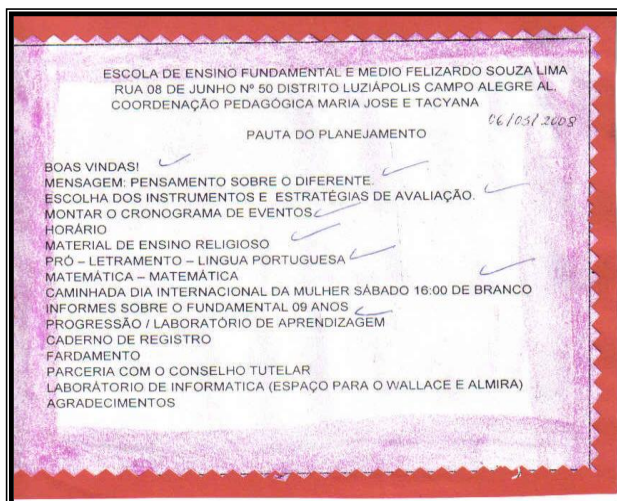 ESCOLA DE ENSINO FUNDAMENTAL E MEDIO FELIZARDO SOUZA LIMA
RUA 08 DE JUNHO Nº 50 DISTRITO LUZIÁPOLIS CAMPO ALEGRE AL.
COORDENAÇÃO PEDAGÓGICA MARIA JOSE E TACYANA
06/05/2008
PAUTA DO PLANEJAMENTO
BOAS VINDAS!
MENSAGEM: PENSAMENTO SOBRE O DIFERENTE.
ESCOLHA DOS INSTRUMENTOS E ESTRATÉGIAS DE AVALIAÇÃO.
MONTAR O CRONOGRAMA DE EVENTOS
HORÁRIO
MATERIAL DE ENSINO RELIGIOSO
PRÓ – LETRAMENTO – LINGUA PORTUGUESA
MATEMÁTICA – MATEMÁTICA
CAMINHADA DIA INTERNACIONAL DA MULHER SÁBADO 16:00 DE BRANCO
INFORMES SOBRE O FUNDAMENTAL 09 ANOS
PROGRESSÃO / LABORATÓRIO DE APRENDIZAGEM
CADERNO DE REGISTRO
FARDAMENTO
PARCERIA COM O CONSELHO TUTELAR
LABORÁTORIO DE INFORMATICA (ESPAÇO PARA O WALLACE E ALMIRA)
AGRADECIMENTOS